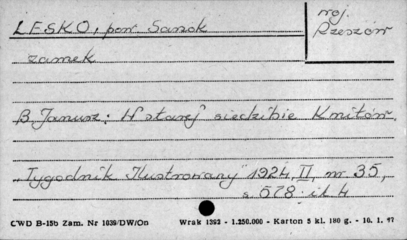 LESKO, pow. Sanok
woj. Rzeszów
zamek
B. Janusz: W starej siedzibie Kmitów.
"Tygodnik Ilustrowany" 1924, II, nr. 35,
s. 578 il. 4
CWD B-15b Zam. Nr 1039/DW/On Wrak 1392 - 1.250.000 - Karton 5 kl. 180 g. - 10. 1. 47